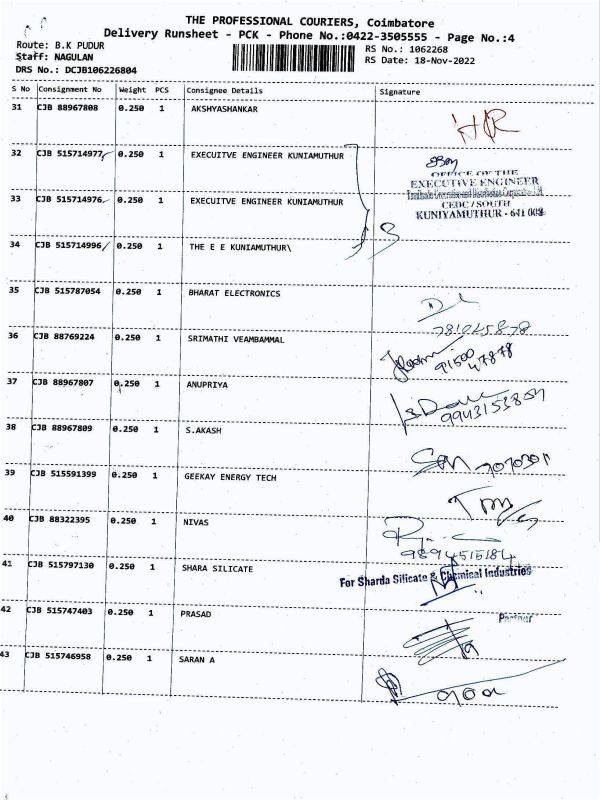 THE PROFESSIONAL COURIERS, Coimbatore
Delivery Runsheet - PCK - Phone No.:0422-3505555 - Page No.:4
Route: B.K PUDUR
RS No.: 1062268
Staff: NAGULAN
RS Date: 18-Nov-2022
DRS No.: DCJB106226804
S No Consignment No Weight PCS Consignee Details Signature
31 CJB 88967808 0.250 1 AKSHYASHANKAR
32 CJB 515714977 0.250 1 EXECUITVE ENGINEER KUNIAMUTHUR
OFFICE OF THE
EXECUTIVE ENGINEER
33 CJB 515714976 0.250 1 EXECUITVE ENGINEER KUNIAMUTHUR
CEDC / SOUTH
KUNIYAMUTHUR - 641 008
34 CJB 515714996 0.250 1 THE E E KUNIAMUTHUR\
35 CJB 515787054 0.250 1 BHARAT ELECTRONICS
36 CJB 88769224 0.250 1 SRIMATHI VEAMBAMMAL
91500
47878
37 CJB 88967807 0.250 1 ANUPRIYA
38 CJB 88967809 0.250 1 S.AKASH
39 CJB 515591399 0.250 1 GEEKAY ENERGY TECH
40 CJB 88322395 0.250 1 NIVAS
9894515184
41 CJB 515797130 0.250 1 SHARA SILICATE
For Sharda Silicate & Chemical Industries
42 CJB 515747403 0.250 1 PRASAD
Partner
43 CJB 515746958 0.250 1 SARAN A